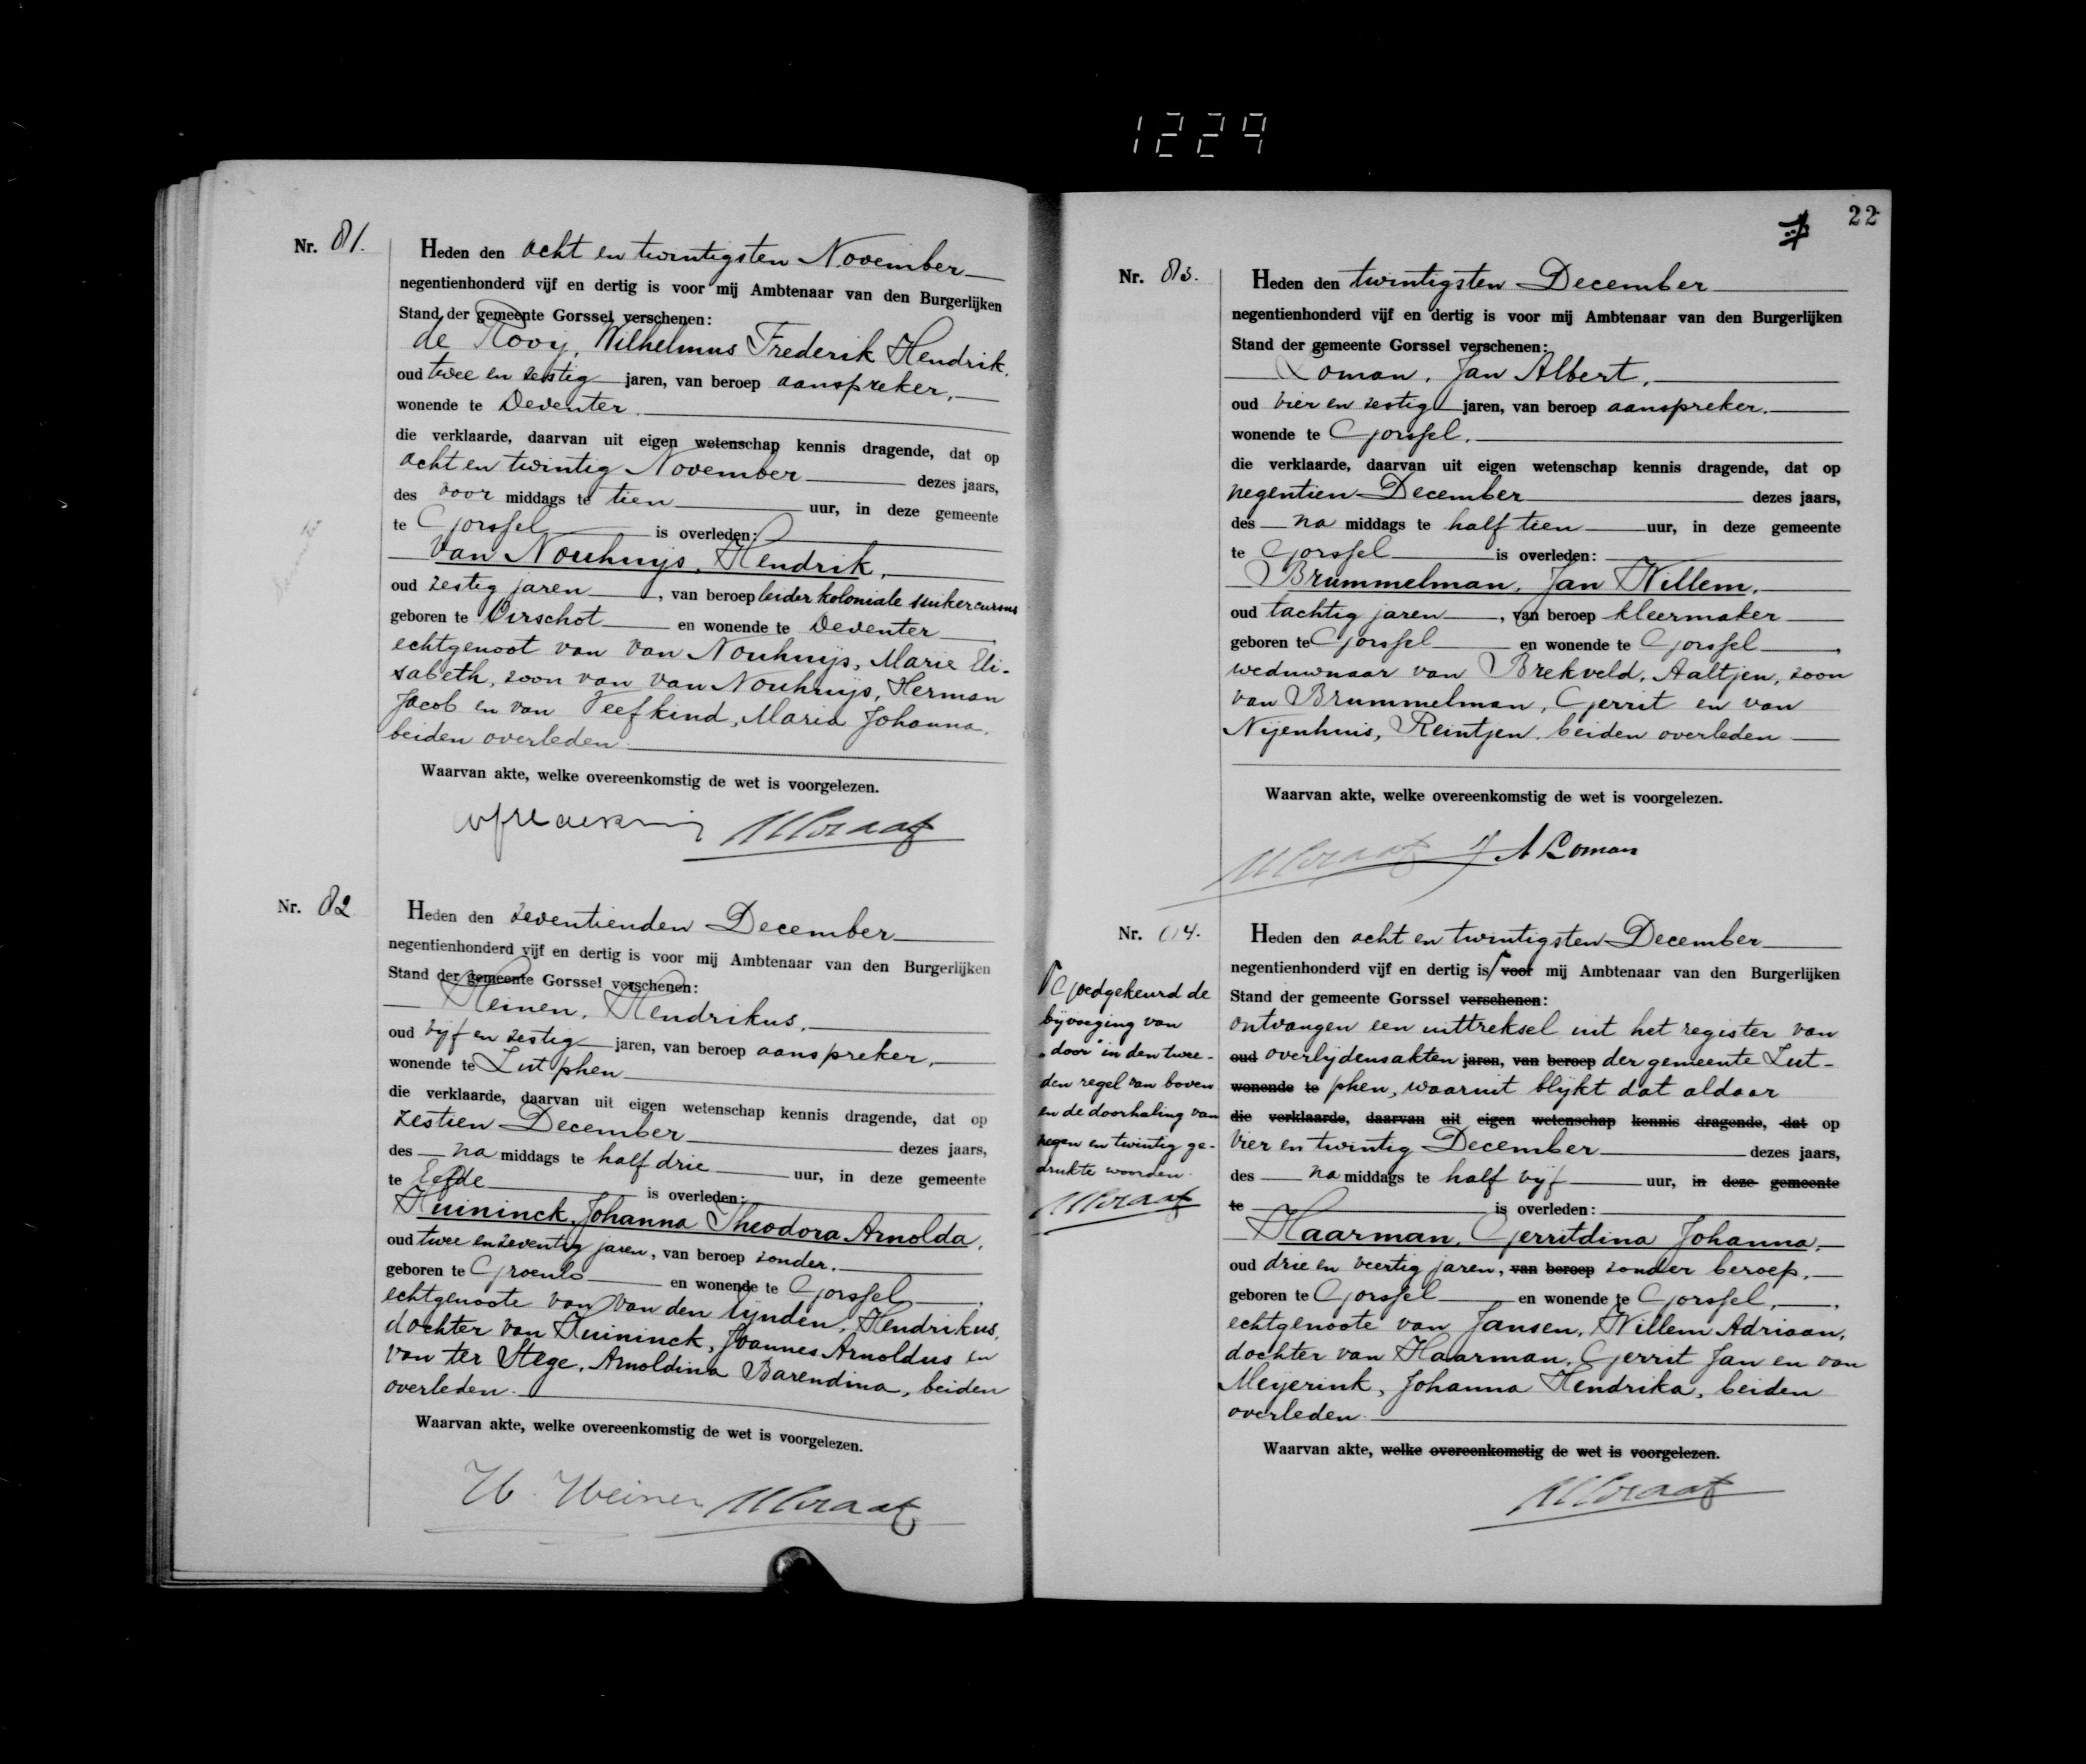 1229
Nr. 81.
Heden den acht en twintigsten November
negentienhonderd vijf en dertig is voor mij Ambtenaar van den Burgerlijken
Stand der gemeente Gorssel verschenen:
de Rooy, Wilhelmus Frederik Hendrik,
oud twee en zestig jaren, van beroep aanspreker,
wonende te Deventer.
die verklaarde, daarvan uit eigen wetenschap kennis dragende, dat op
acht en twintig November dezes jaars,
des voor middags te tien uur, in deze gemeente
te Gorssel is overleden:
van Nouhuijs, Hendrik,
oud zestig jaren, van beroep leider koloniale suikercursus
geboren te Oirschot en wonende te Deventer,
echtgenoot van van Nouhuijs, Marie Eli-
sabeth, zoon van van Nouhuijs, Herman
Jacob en van Veefkind, Maria Johanna,
beiden overleden.
Waarvan akte, welke overeenkomstig de wet is voorgelezen.
Nr. 82
Heden den zeventienden December
negentienhonderd vijf en dertig is voor mij Ambtenaar van den Burgerlijken
Stand der gemeente Gorssel verschenen:
Heinen, Hendrikus,
oud vijf en zestig jaren, van beroep aanspreker,
wonende te Zutphen
die verklaarde, daarvan uit eigen wetenschap kennis dragende, dat op
zestien December dezes jaars,
des na middags te half drie uur, in deze gemeente
te Eefde is overleden:
Huininck, Johanna Theodora Arnolda,
oud twee en zeventig jaren, van beroep zonder.
geboren te Groenlo en wonende te Gorssel,
echtgenoote van van den Lijnden, Hendrikus,
dochter van Huininck, Joannes Arnoldus en
van ter Stege, Arnoldina Barendina, beiden
overleden.
Waarvan akte, welke overeenkomstig de wet is voorgelezen.
H. Heinen
22
Nr. 83.
Heden den twintigsten December
negentienhonderd vijf en dertig is voor mij Ambtenaar van den Burgerlijken
Stand der gemeente Gorssel verschenen:
Loman, Jan Albert,
oud vier en zestig jaren, van beroep aanspreker.
wonende te Gorssel.
die verklaarde, daarvan uit eigen wetenschap kennis dragende, dat op
negentien December dezes jaars,
des na middags te half tien uur, in deze gemeente
te Gorssel is overleden:
Brummelman, Jan Willem,
oud tachtig jaren, van beroep kleermaker
geboren te Gorssel en wonende te Gorssel,
weduwnaar van Brekveld, Aaltjen, zoon
van Brummelman, Gerrit en van
Nijenhuis, Reintjen, beiden overleden
Waarvan akte, welke overeenkomstig de wet is voorgelezen.
J A Loman
Nr. 84.
Heden den acht en twintigsten December
negentienhonderd vijf en dertig is voor mij Ambtenaar van den Burgerlijken
Stand der gemeente Gorssel verschenen:
ontvangen een uittreksel uit het register van
oud overlijdensakten jaren, van beroep der gemeente Zut-
wonende te phen, waaruit blijkt dat aldaar
die verklaarde, daarvan uit eigen wetenschap kennis dragende, dat op
vier en twintig December dezes jaars,
des na middags te half vijf uur, in deze gemeente
te is overleden:
Haarman, Gerritdina Johanna,
oud drie en veertig jaren, van beroep zonder beroep,
geboren te Gorssel en wonende te Gorssel,
echtgenoote van Jansen, Willem Adriaan,
dochter van Haarman, Gerrit Jan en van
Meyerink, Johanna Hendrika, beiden
overleden.
Waarvan akte, welke overeenkomstig de wet is voorgelezen.
Goedgekeurd de
bijvoeging van
"door" in den twee-
den regel van boven
en de doorhaling van
negen en twintig ge-
drukte woorden.